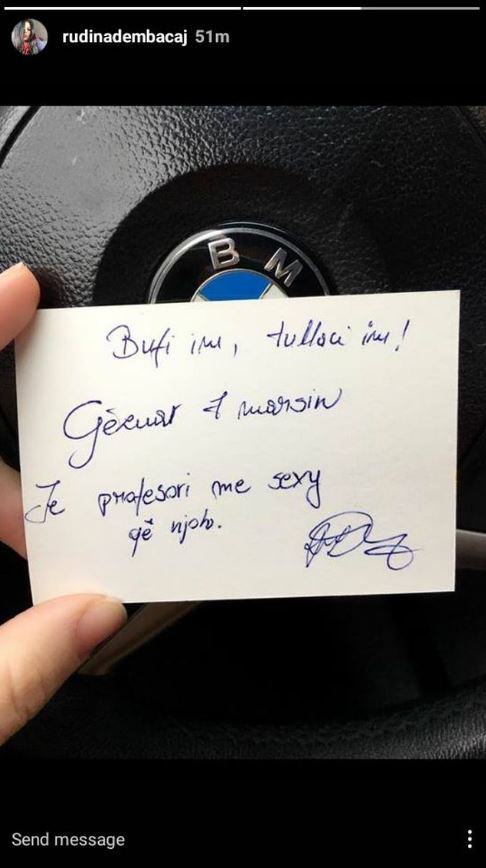 rudinadembacaj 51m
B M
Bufi im, tullaci im!
Gëzuar 7 marsin
Je profesori me sexy
që njoh.
Send message